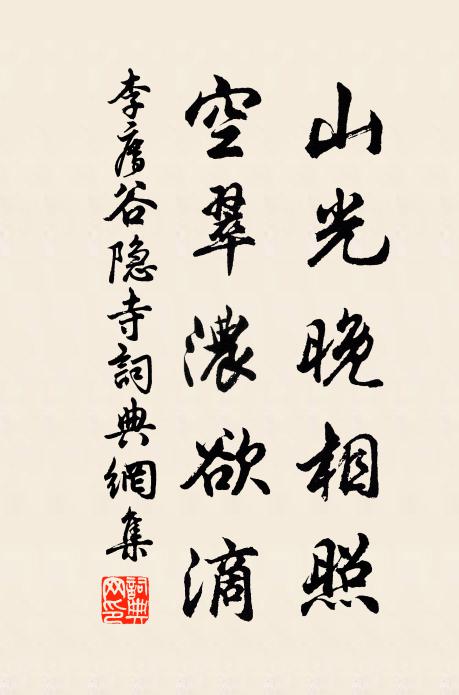 山光晚相照
空翠濃欲滴
李廌谷隐寺詞典網集
詞典網印